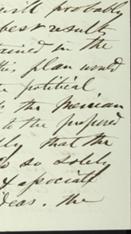 will probably
best results
in the
this plan would
political
to the Mexican
to the proposed
that the
so solely
especially
ideas. the